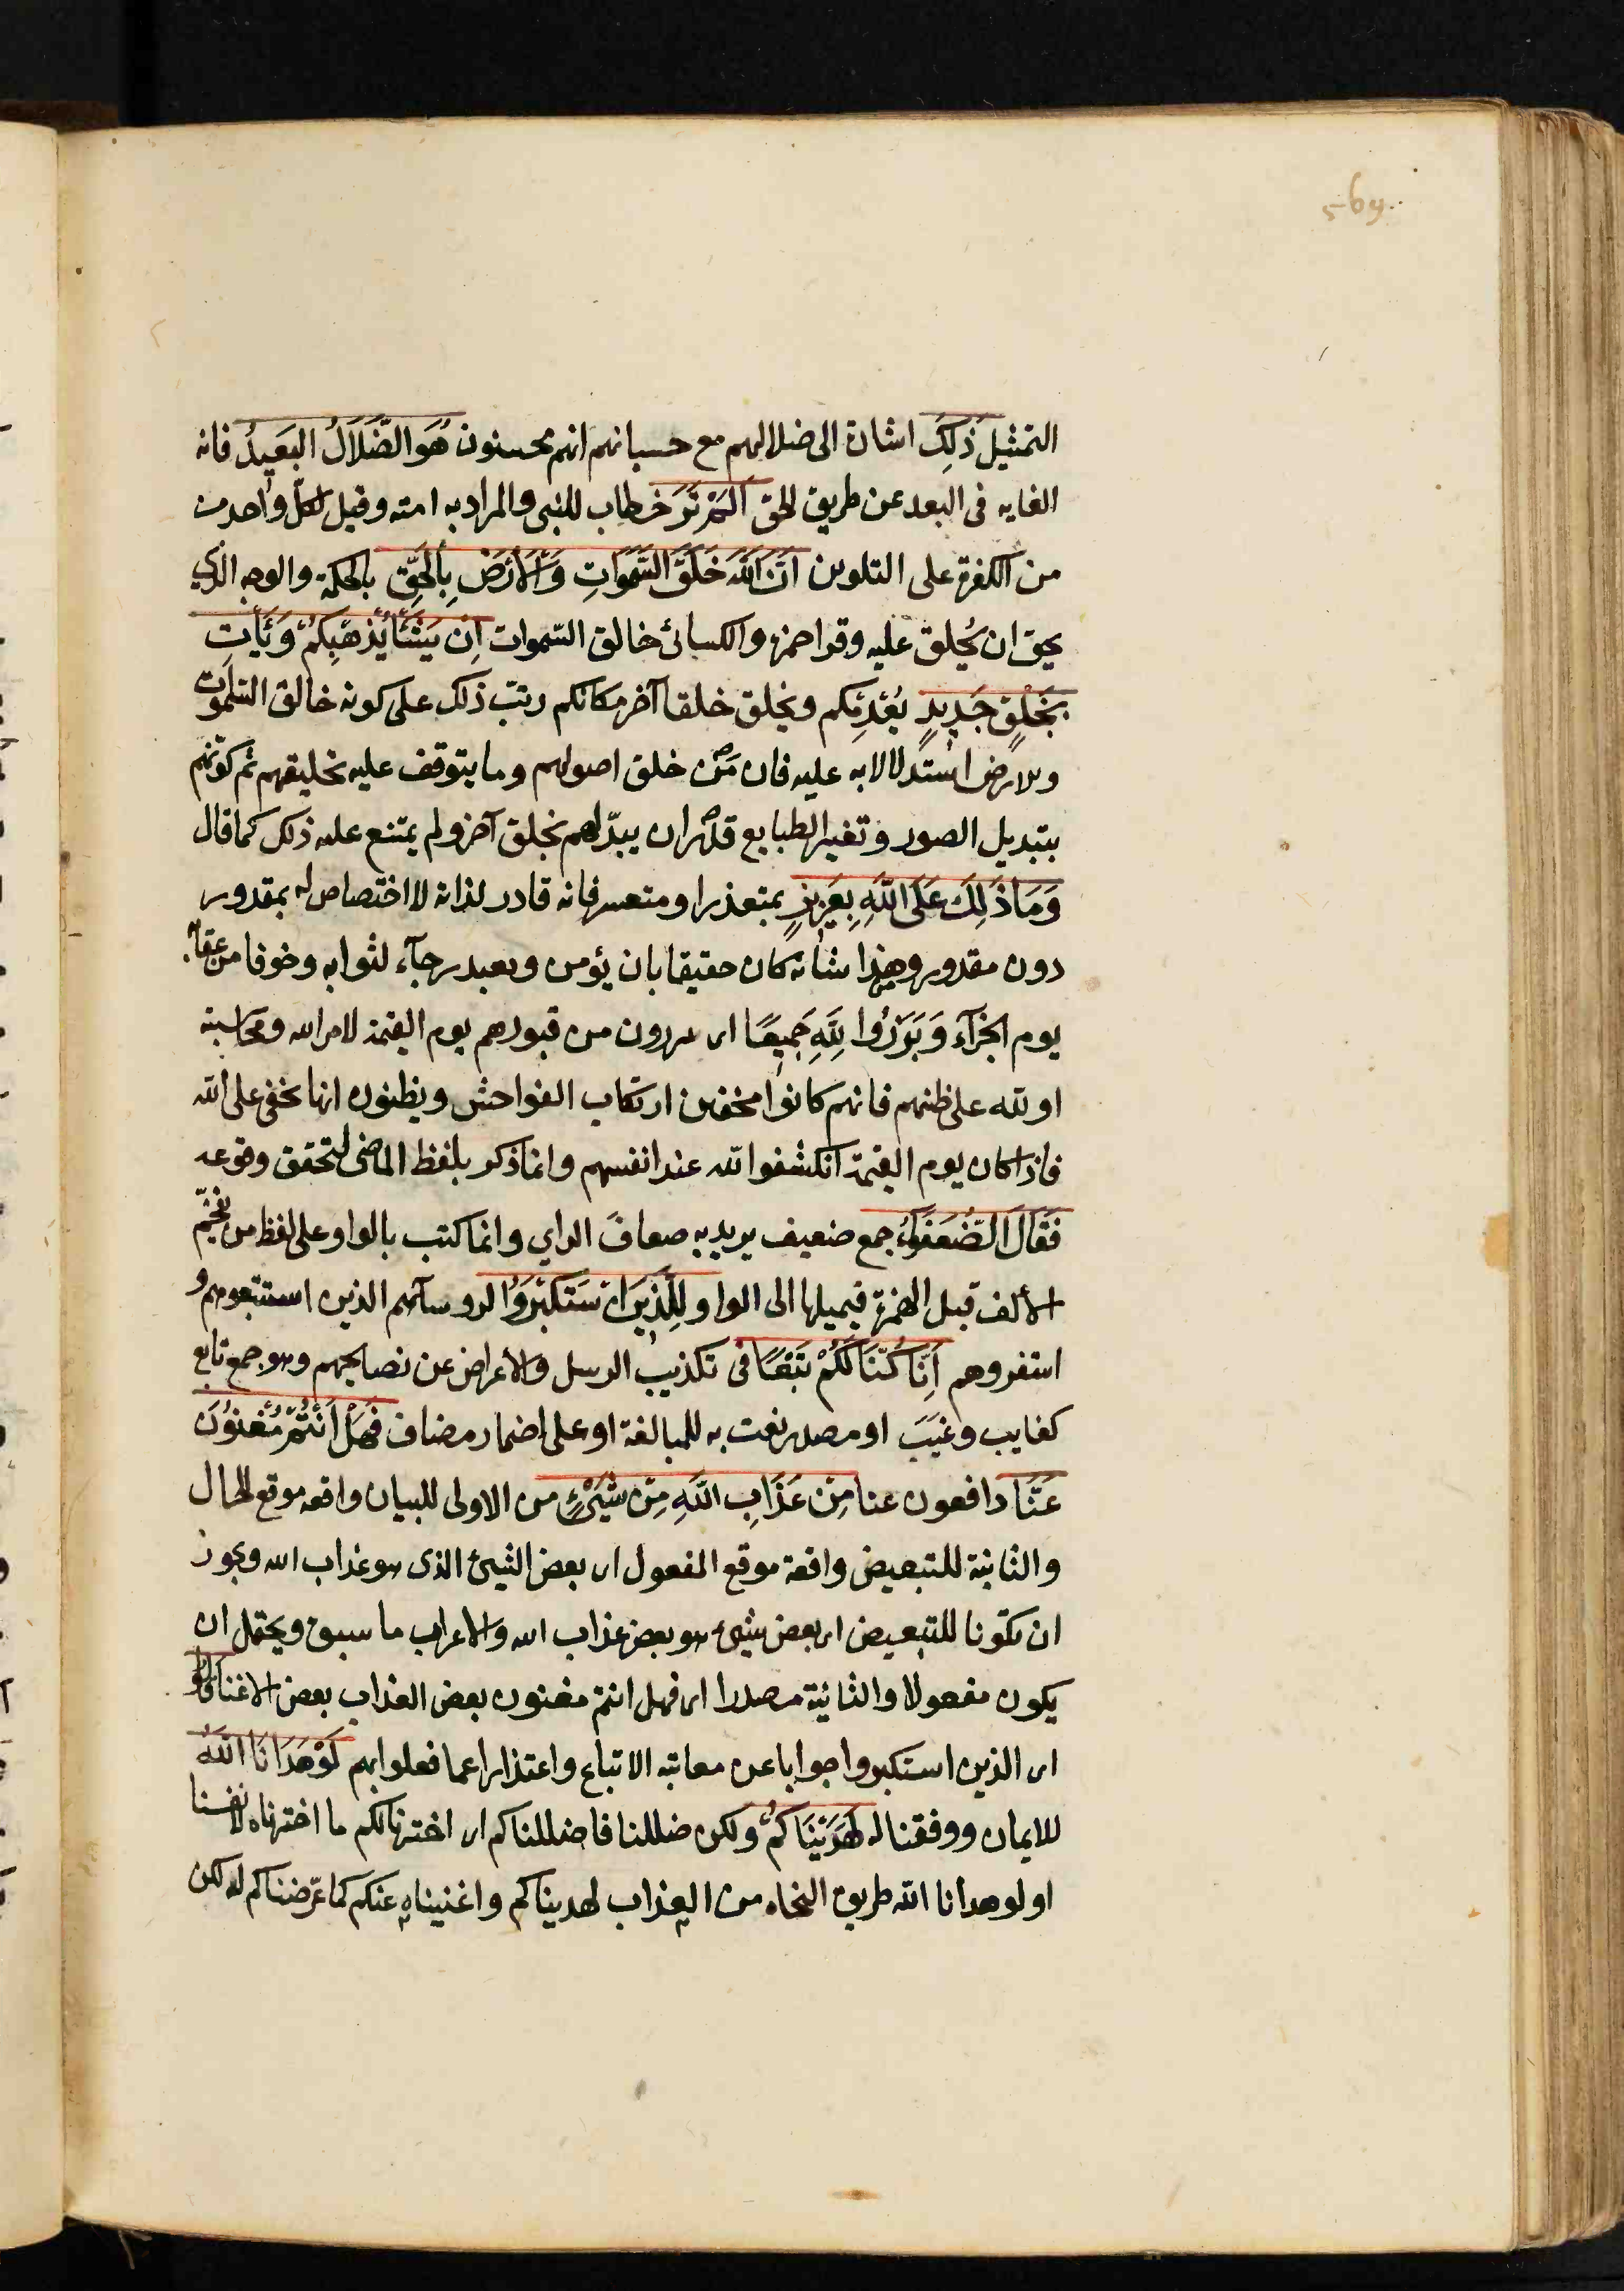 569
التمثيل ذَلِكَ اشارة الى ضلالهم مع حسبانهم انهم محسنون هُوَ الضَّلَالُ البَعِيدُ فانه
الغايه فى البعد عن طريق الحق اَلَمْ تَرَ خطاب للنبى والمراد به امته وقيل لكل واحد من
من الكفرة على التلوين اَنَّ اللّٰهَ خَلَقَ السَّمٰوَاتِ وَالْاَرْضَ بِالْحَقِّ بالحكمة والوجه الذي
يحق ان يُخلق عليه وقرا حمزة والكسائئ خالق السّموات اِنْ يَشَأْ يُذْهِبْكُمْ وَيَأْتِ
بِخَلْقٍ جَدِيدٍ يُعْدِمْكم ويخلق خلقا آخر مكانكم رتب ذلك على كونه خالق السّموات
والارض استدلالا به عليه فان مَن خلق اصولهم وما يتوقف عليه تخليقهم ثم كونهم
بتبديل الصور وتغيير الطبايع قدر ان يبدّلهم بخلق آخر ولم يمتنع عليه ذلك كما قال
وَمَا ذَلِكَ عَلَى اللّٰهِ بِعَزِيزٍ بمتعذر او متعسر فانه قادر لذاته لا اختصاص له بمقدور
دون مقدور وهذا شانه كان حقيقا بان يؤمن ويعبد رجآء لثوابه وخوفا من عقابه
يوم الجزآء وَبَرَزُوا لِلّٰهِ جَمِيعًا اى يبرزون من قبورهم يوم القيمة لامر الله ومحاسبته
او لله على ظنهم فانهم كانوا يخفون ارتكاب الفواحش ويظنون انها تخفى على الله
فاذا كان يوم القيمة انكشفوا لله عند انفسهم وانما ذكر بلفظ الماضى لتحقق وقوعه
فَقَالَ الضُّعَفَؤُا جمع ضعيف يريد به ضعافَ الراي وانما كتب بالواو على لفظ من يُفخّم
الالف قبل الهمزة فيميلها الى الواو لِلَّذِينَ اسْتَكْبَرُوا لروسآئهم الذين استتبعوهم و
استفروهم اِنَّا كُنَّا لَكُمْ تَبَعًا فى تكذيب الرسل والاعراض عن نصايحهم وهو جمع تابع
كغايب وغَيَب او مصدر نعت به للمبالغة او على اضمار مضاف فَهَلْ اَنْتُمْ مُغْنُونَ
عَنَّا دافعون عنا مِنْ عَذَابِ اللّٰهِ مِنْ شَيْءٍ من الاولى للبيان واقعه موقع الحال
والثانية للتبعيض واقعة موقع المفعول اى بعض الشيئ الذى هو عذاب الله ويجوز
ان تكونا للتبعيض اى بعض شيئ هو بعض عذاب الله والاعراب ما سبق ويحتمل ان
يكون مفعولا والثانية مصدرا اى فهل انتم مغنون بعض العذاب بعض الاغنا قَالُوا
اى الذين استكبروا جوابا عن معاتبة الاتباع واعتذارا عما فعلوا بهم لَوْ هَدَانَا اللّٰهُ
للايمان ووفقنا له لَهَدَيْنَاكُمْ ولكن ضللنا فاضللناكم اى اخترنا لكم ما اخترناه لانفسنا
او لو هدانا الله طريق النجاه من العذاب لهديناكم واغنيناه عنكم كما عرّضناكم له لكن